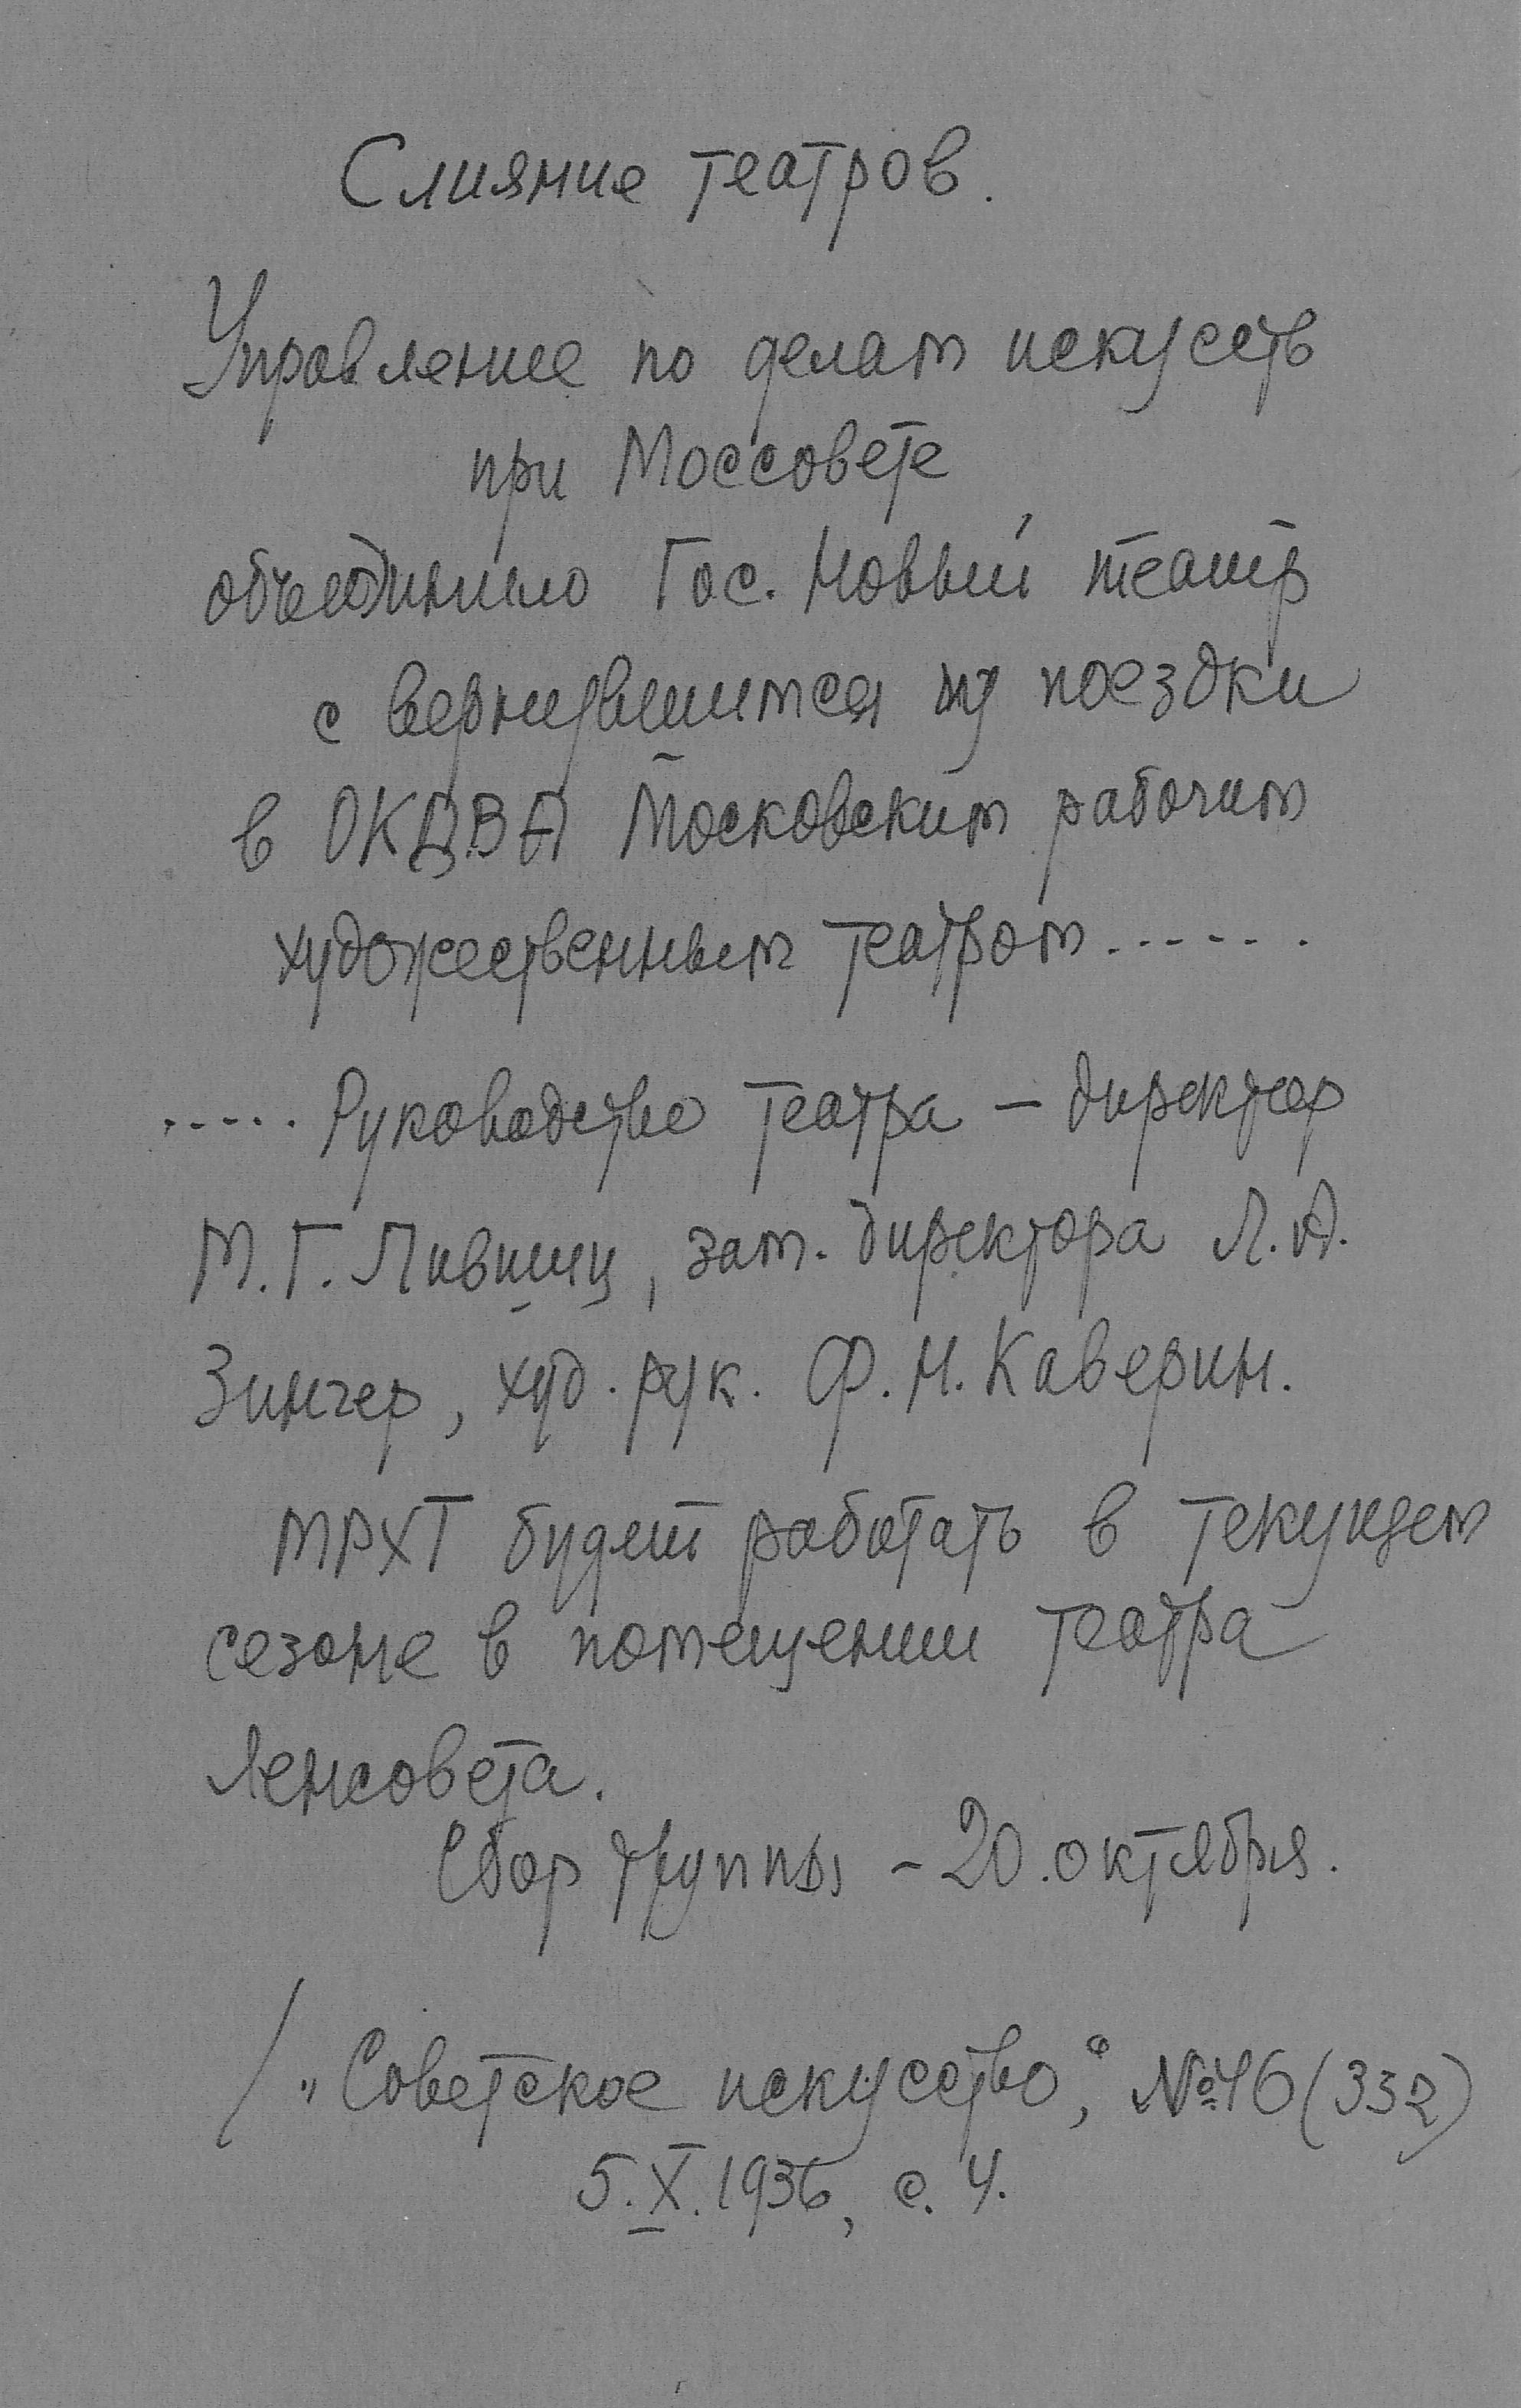 Слияние театров.
Управление по делам искусств
при Моссовете
объединило Гос. Новый театр
с вернувшимся из поездки
в ОКДВА Московским рабочим
художественным театром.......
..... Руководство театра – директор
М. Г. Лившиц, зам. директора Л. А.
Зингер, худ. рук. Ф. Н. Каверин.
МРХТ будет работать в текущем
сезоне в помещении театра
Ленсовета.
Сбор труппы – 20. октября.
/ „Советское искусство", №46 (332)
5.X.1936, с. 4.